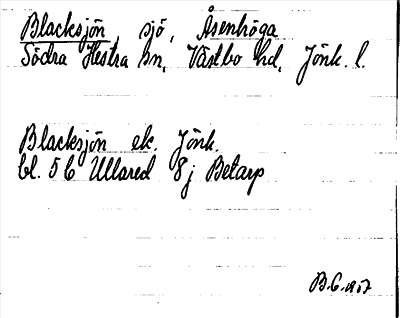 Blacksjön, sjö, Åsenhöga
Södra Hestra sn, Västbo hd, Jönk. l.
Blacksjön ek. Jönk.
bl. 5C Ullared 8j Betarp